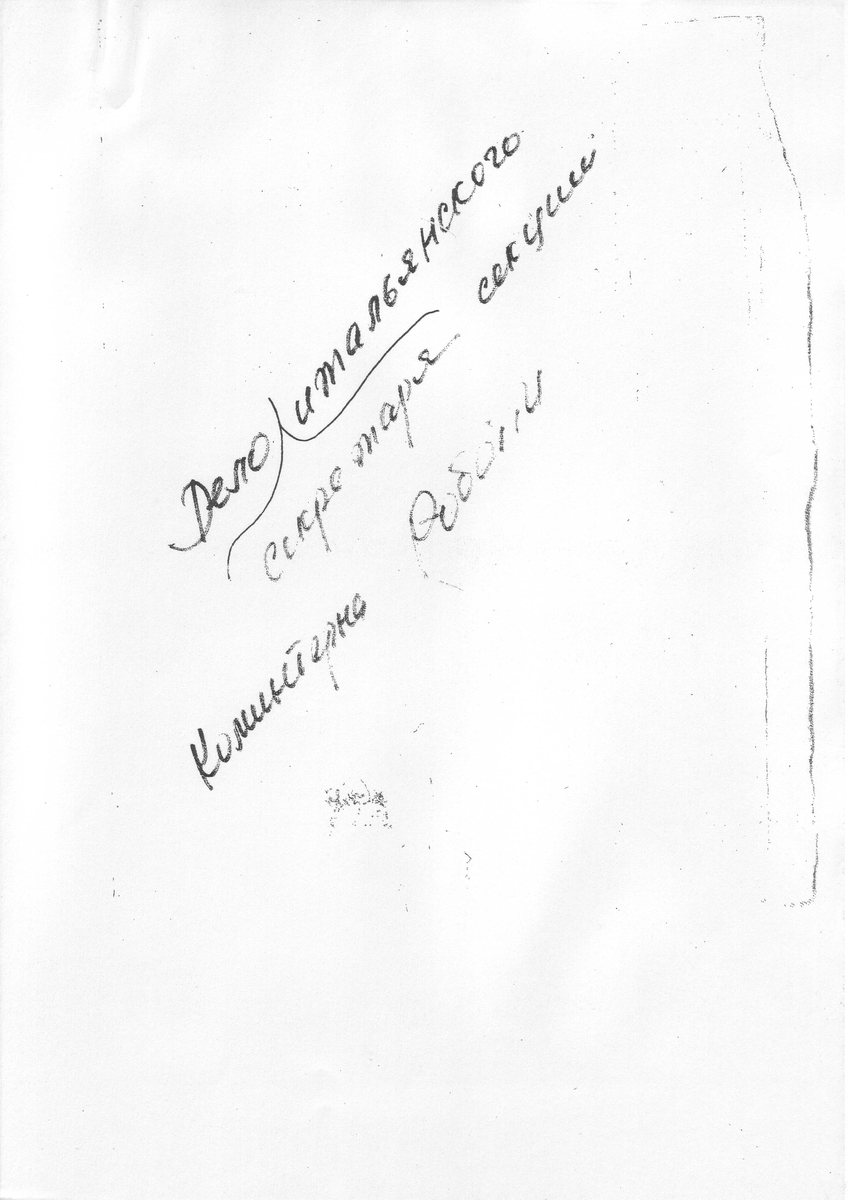 Дело итальянского
секретаря секции
Коминтерна Роботти